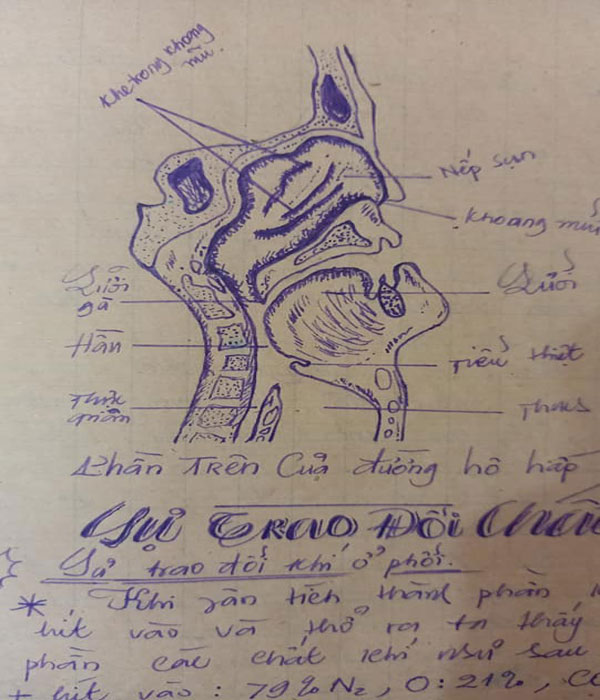 Khe trong khoang
mũi
Nếp sụn
Khoang mũi
Lưỡi
gà
Lưỡi
Hần
Tiểu thiệt
Thực
quản
Phần TRÊN Của đường hô hấp
Sự TRAO ĐỔI Chất
Sự trao đổi khí ở phổi.
* Khi phân tích thành phần
hít vào và thở ra ta thấy
phần các chất khí như sau
+ hít vào : 79% N2, O : 21%,